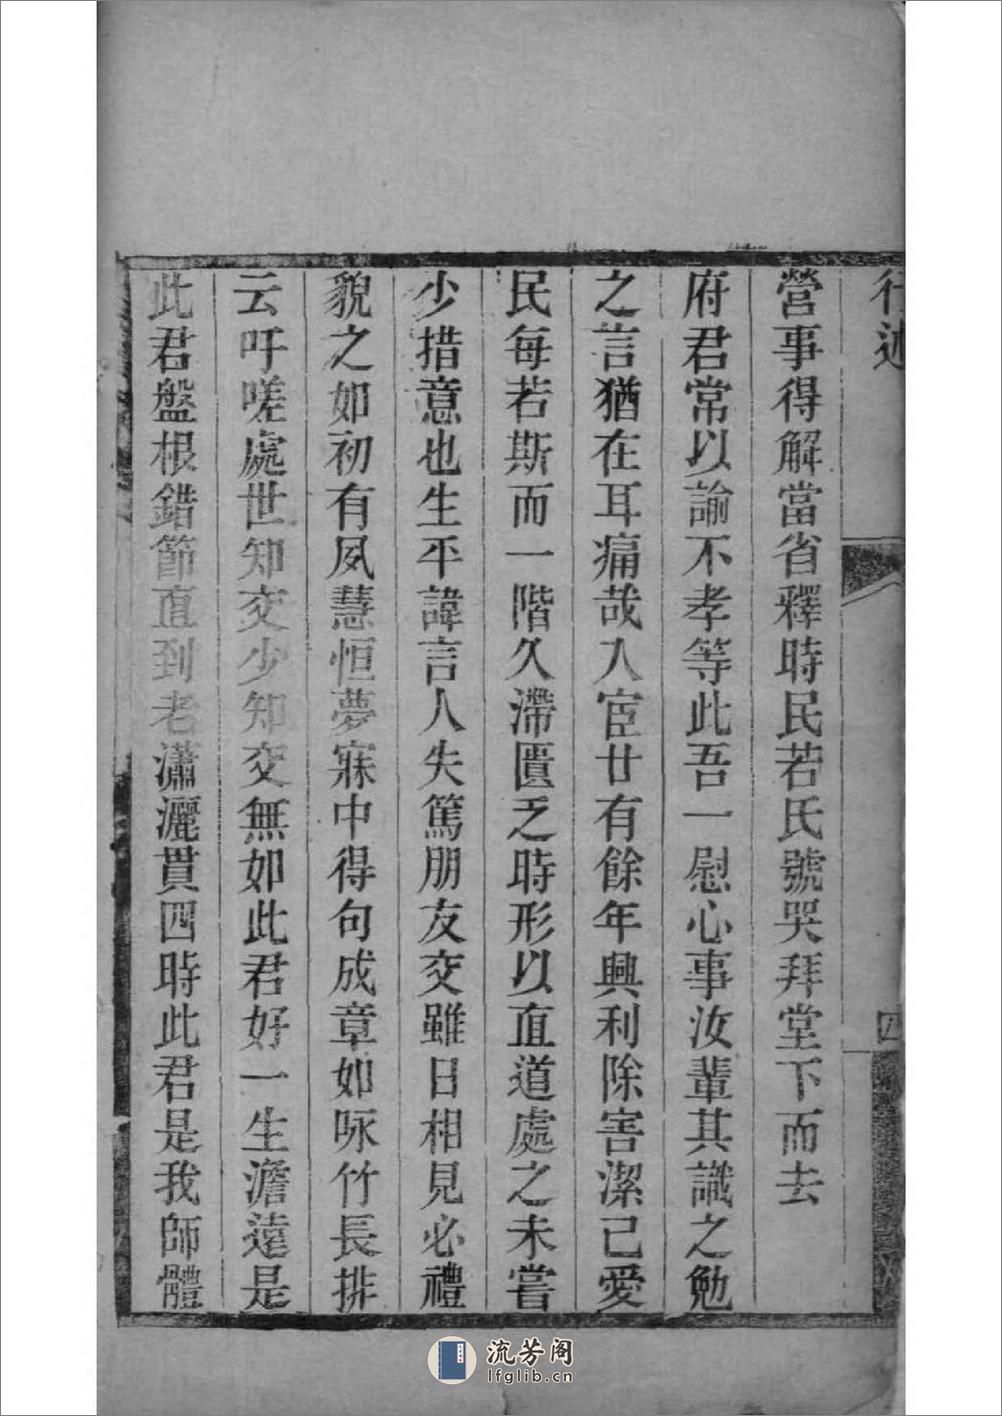 行述
四
營事得解當省釋時民若氏號哭拜堂下而去
府君常以諭不孝等此吾一慰心事汝輩其識之勉
之言猶在耳痛哉入宦廿有餘年興利除害潔己愛
民每若斯而一階久滯匱乏時形以直道處之未嘗
少措意也生平諱言人失篤朋友交雖日相見必禮
貌之如初有夙慧恒夢寐中得句成章如咏竹長排
云吁嗟處世知交少知交無如此君好一生澹遠是
此君盤根錯節直到老瀟灑貫四時此君是我師體
流芳阁
lfglib.cn